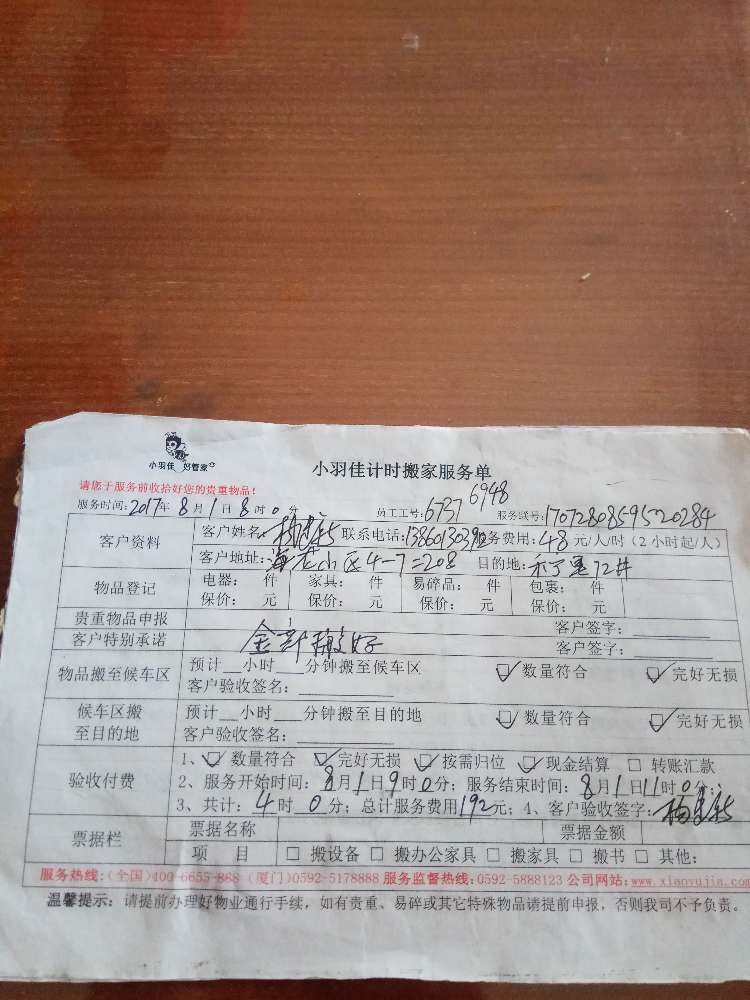 小羽佳 好管家
小羽佳计时搬家服务单
请您于服务前收拾好您的贵重物品!
服务时间:2017年8月1日8时0分 员工工号:6737 6948 服务账号:1707280859520284
客户资料 客户姓名: 联系电话:13860130392 服务费用:48元/人/时(2小时起/人)
客户地址:海花小区4-7=208 目的地:禾丁里72#
物品登记 电器: 件 家具: 件 易碎品: 件 包裹: 件
保价: 元 保价: 元 保价: 元 保价: 元
贵重物品申报 客户签字:
客户特别承诺 全部搬好 客户签字:
物品搬至候车区 预计__小时___分钟搬至候车区 ☑数量符合 ☑完好无损
客户验收签名:
候车区搬至目的地 预计__小时___分钟搬至目的地 ☑数量符合 ☑完好无损
客户验收签名:
验收付费 1、☑数量符合 ☑完好无损 ☑按需归位 ☑现金结算 □转账汇款
2、服务开始时间:8月1日9时0分;服务结束时间:8月1日11时0分;
3、共计:4时0分;总计服务费用192元;4、客户验收签字:
票据栏 票据名称 票据金额
项 目 □搬设备 □搬办公家具 □搬家具 □搬书 □其他:
服务热线:(全国)400-6655-868 (厦门)0592-5178888 服务监督热线:0592-5888123 公司网站:www.xiaoyujia.com
温馨提示:请提前办理好物业通行手续,如有贵重、易碎或其它特殊物品请提前申报,否则我司不予负责。